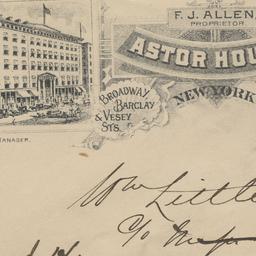 F. J. ALLEN,
PROPRIETOR
ASTOR HOU
NEW YORK
BROADWAY,
BARCLAY
& VESEY
STS.
MANAGER.
Wm Little
C/o